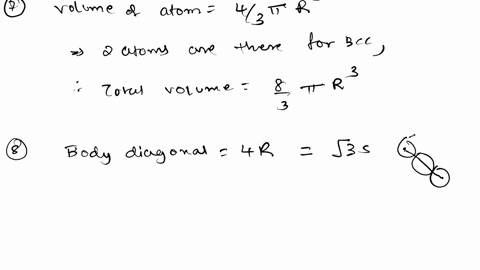 ⑦ Volume of atom = 4/3 π R
⇒ 2 atoms are there for BCC,
∴ Total volume = 8/3 π R³
⑧ Body diagonal = 4R = √3 s